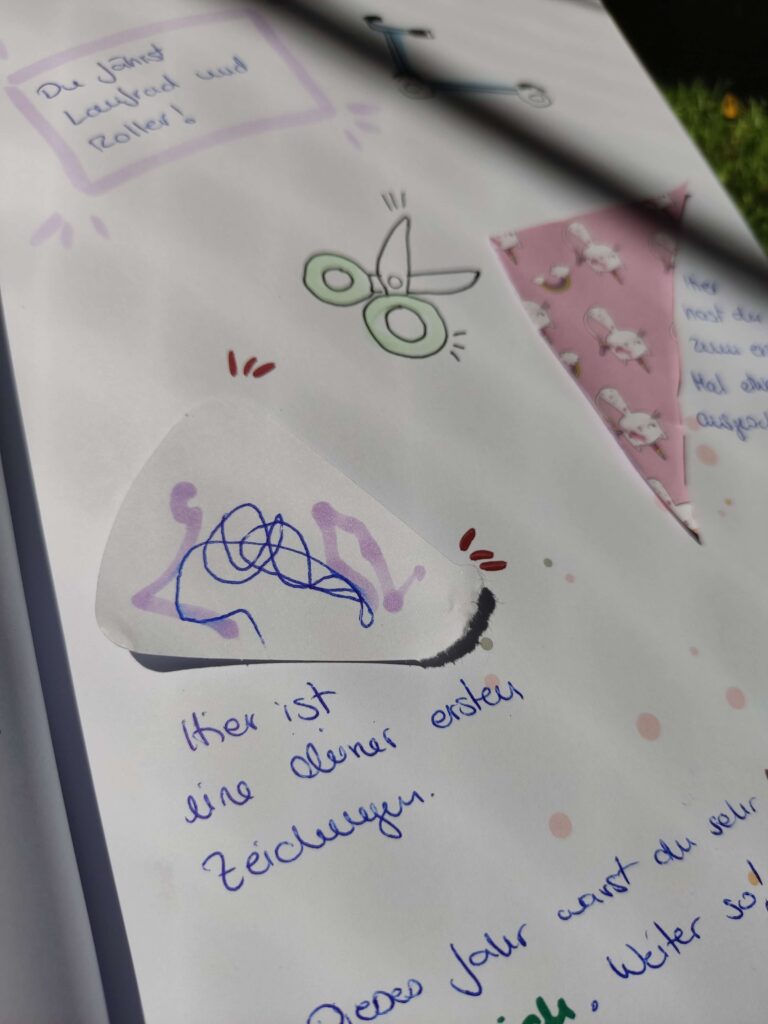 Du fährst
Laufrad und
Roller!
Hier
hast du
zum
Mal
Hier ist
eine deiner ersten
Zeichnungen.
Dieses Jahr warst du sehr
Weiter so!